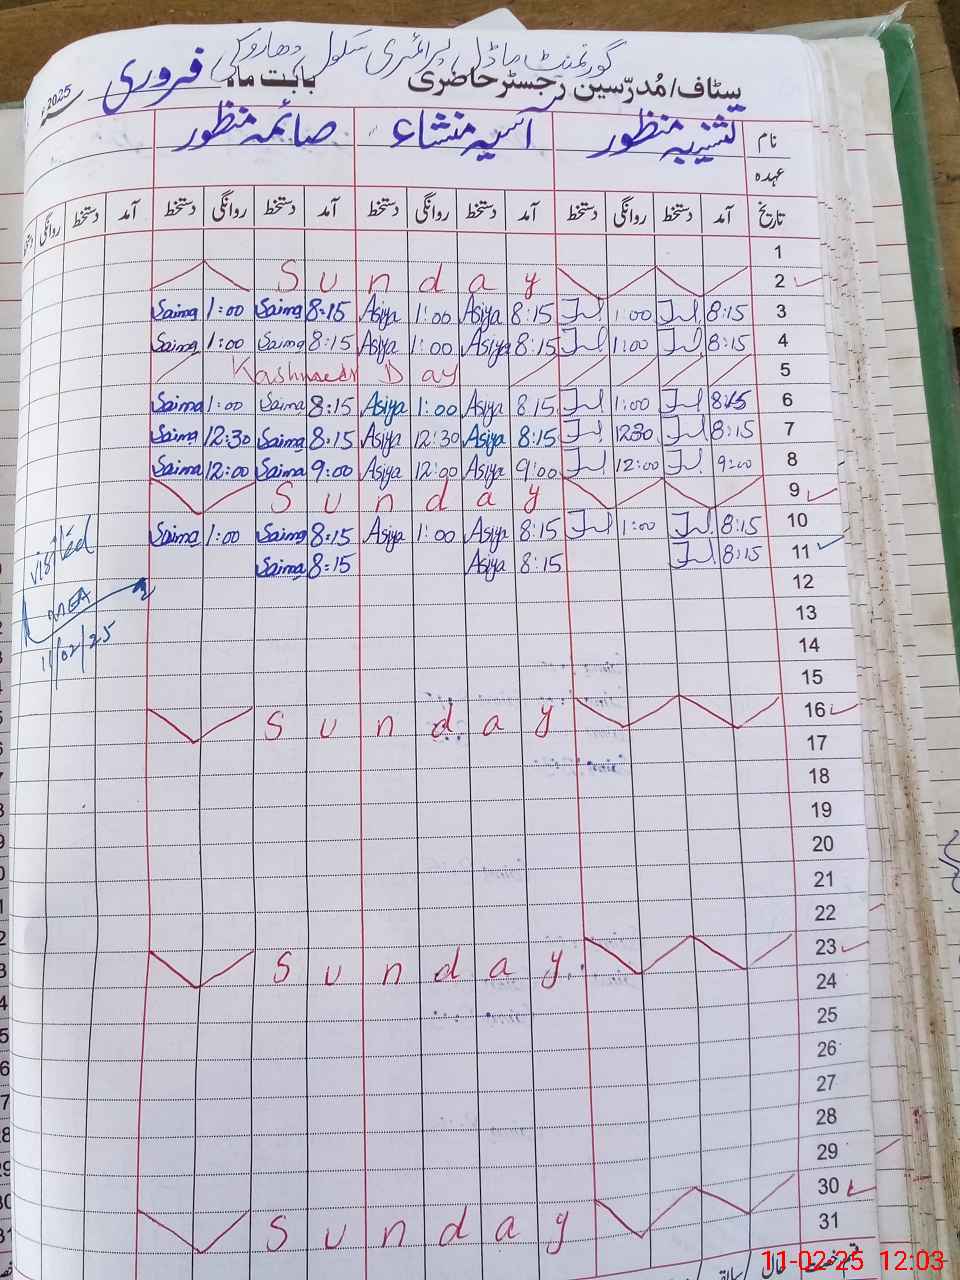 گورنمنٹ ماڈل پرائمری سکول دھاروکی
سٹاف/مُدرّسین رجسٹر حاضری بابت ماہ فروری 2025
نام تشبیہ منظور آسیہ منشاء صائمہ منظور
عہدہ
تاریخ آمد دستخط روانگی دستخط آمد دستخط روانگی دستخط آمد دستخط روانگی دستخط آمد دستخط روانگی
1
Sunday 2
Saima 1:00 Saima 8:15 Asiya 1:00 Asiya 8:15 1:00 8:15 3
Saima 1:00 Saima 8:15 Asiya 1:00 Asiya 8:15 1:00 8:15 4
Kashmeer Day 5
Saima 1:00 Saima 8:15 Asiya 1:00 Asiya 8:15 1:00 8:15 6
Saima 12:30 Saima 8:15 Asiya 12:30 Asiya 8:15 1230 8:15 7
Saima 12:00 Saima 9:00 Asiya 12:00 Asiya 9:00 12:00 9:00 8
Sunday 9
Saima 1:00 Saima 8:15 Asiya 1:00 Asiya 8:15 1:00 8:15 10
Saima 8:15 Asiya 8:15 8:15 11
visited
MEA
11/02/25
12
13
14
15
Sunday 16
17
18
19
20
21
22
Sunday 23
24
25
26
27
28
29
30
Sunday 31
11-02-25 12:03